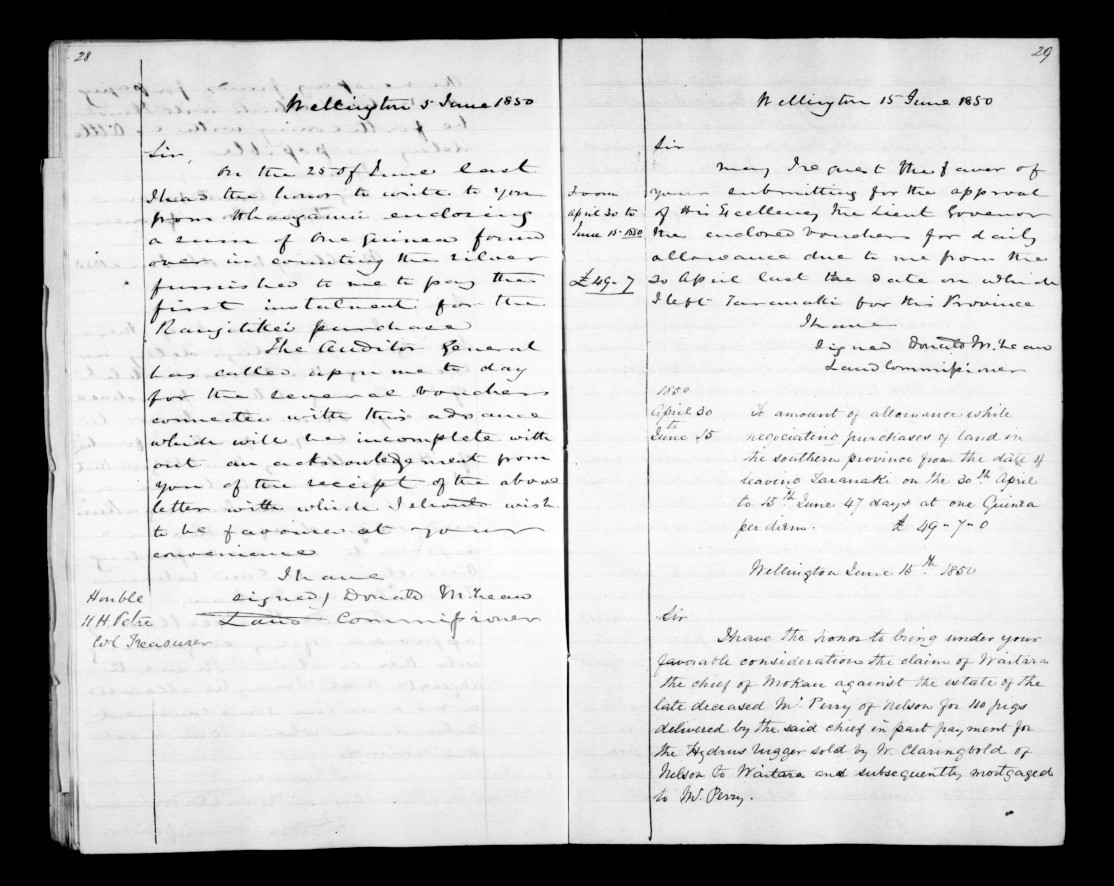 28
Wellington 5 June 1850
Sir,
On the 25 of June last
I had the honor to write to you
from Whanganui enclosing
a sum of One Guinea found
over in counting the silver
furnished to me to pay the
first instalment for the
Rangitikei purchase
The Auditor General
has called upon me to day
for the several vouchers
connected with this advance
which will be incomplete with
out an acknowledgement from
you of the receipt of the above
letter with which I should wish
to be favoured at your
convenience
I have
signed) Donald McLean
Land Commissioner
Honble
H H. Petre
Col Treasurer
29
Wellington 15 June 1850
Sir
may I request the favor of
your submitting for the approval
of His Excellency the Lieut Govenor
the enclosed vouchers for daily
allowance due to me from the
30 April last the date on which
I left Taranaki for this Province
I have
Signed Donald McLean
Land Commissioner
From
April 30 to
June 15 1850
£49-7
1850
April 30
to
June 15
To amount of allowance while
negociating purchases of land in
the southern province from the date of
leaving Taranaki on the 30th April
to 15th June 47 days at one Guinea
per diem. £ 49-7-0
Wellington June 15th 1850
Sir
I have the honor to bring under your
favorable consideration the claim of Waitara
the chief of Mokau against the estate of the
late deceased Mr Perry of Nelson for 110 pigs
delivered by the said chief in part payment for
the Hydrus lugger sold by W. Claringbold of
Nelson to Waitara and subsequently mortgaged
to Mr Perry.